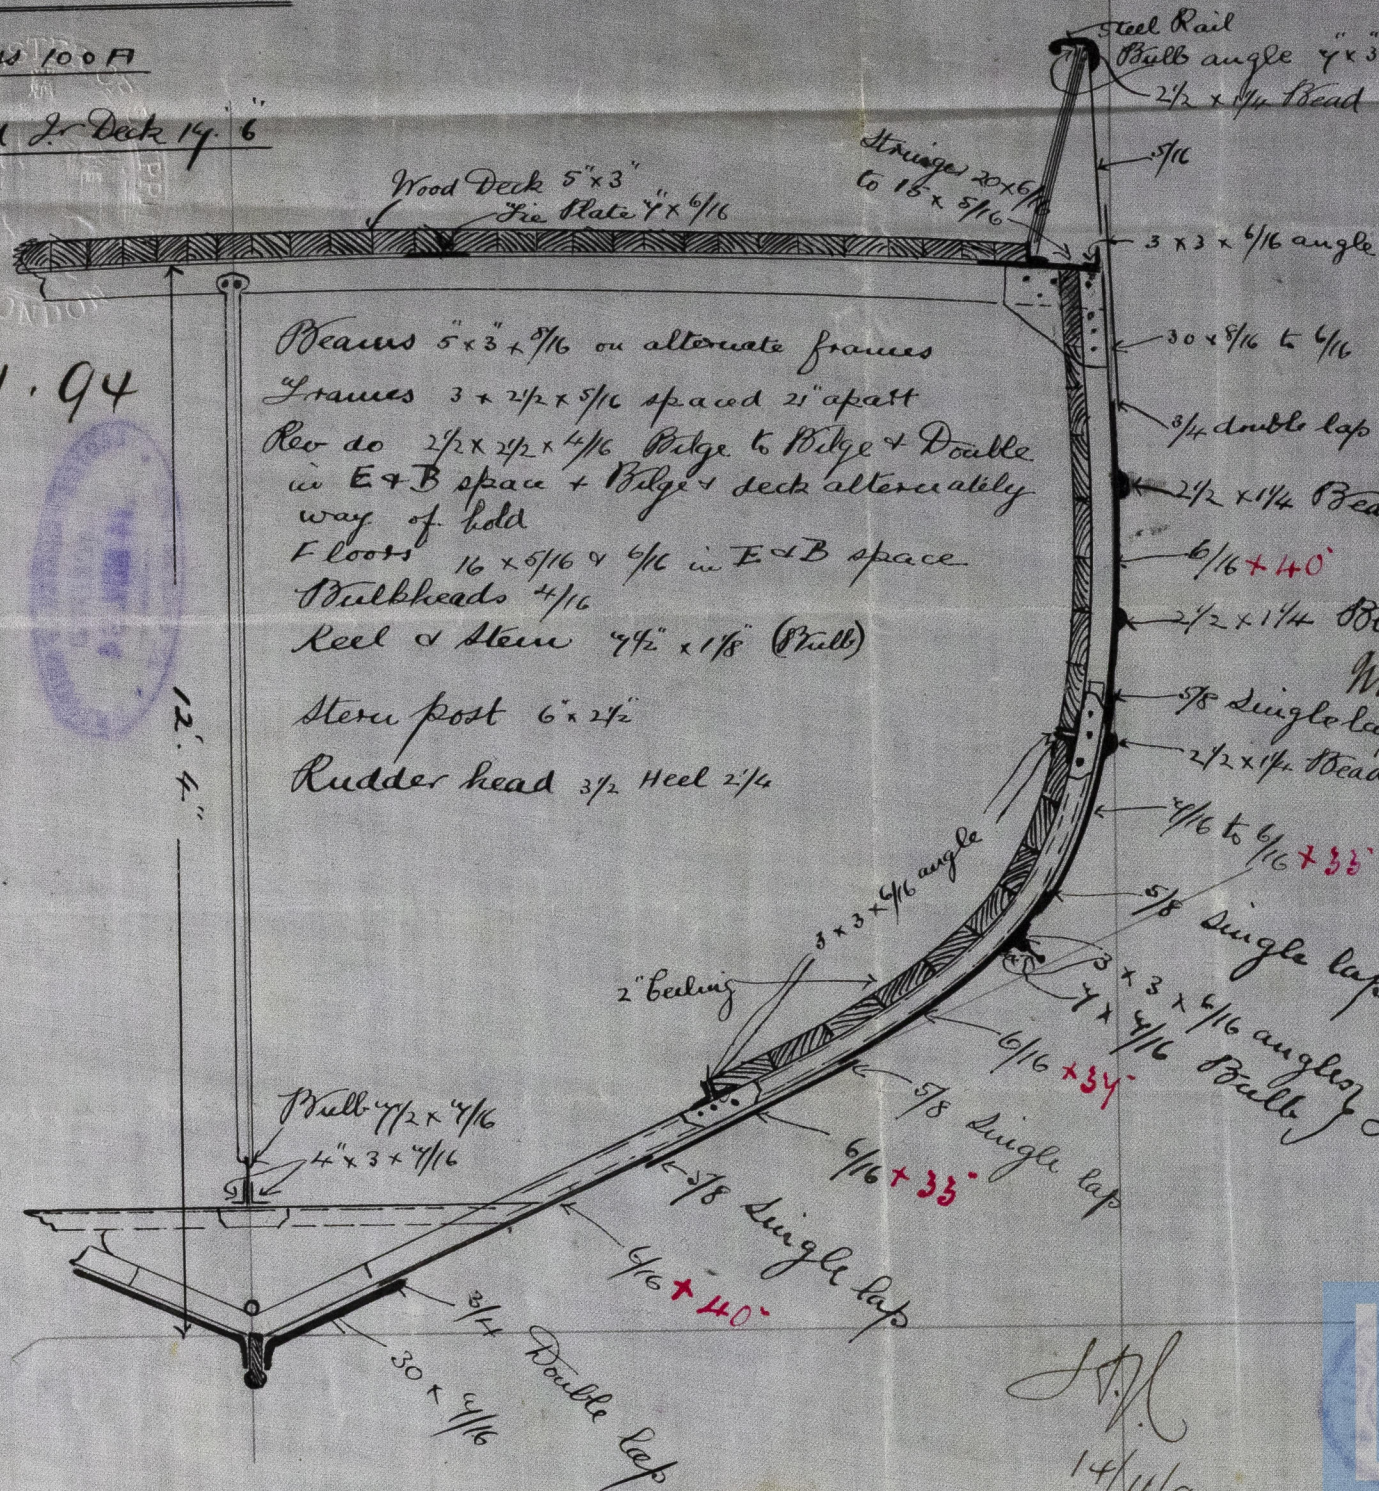 100 A
Fr Deck 14' 6"
. 94
Steel Rail
Bulb angle 7" x 3
2 1/2 x 1 1/4 Bead
5/16
Stringer 20 x 6/16
to 15 x 5/16
Wood Deck 5" x 3"
Tie Plate 7" x 6/16
3 x 3 x 6/16 angle
30 x 8/16 to 6/16
3/4 double lap
2 1/2 x 1 1/4
6/16 x 40"
2 1/2 x 1 1/4
5/8 Single
2 1/2 x 1 1/4 Bead
7/16 to 6/16 x 33"
5/8 Single lap
3 x 3 x 6/16 angles
7 x 7/16 Bulb
Beams 5" x 3" x 8/16 on alternate frames
Frames 3 x 2 1/2 x 5/16 spaced 21" apart
Rev do 2 1/2 x 2 1/2 x 4/16 Bilge to Bilge & Double
in E & B space & Bilge & deck alternately
way of hold
Floors 16 x 5/16 & 6/16 in E & B space
Bulkheads 4/16
Keel & Stem 7 1/2" x 1 1/8" (Bulb)
Stern post 6" x 2 1/2"
Rudder head 3 1/2 Heel 2 1/4
12'. 4"
3 x 3 x 6/16 angle
2" Ceiling
6/16 x 34"
5/8 Single lap
6/16 x 33"
5/8 Single lap
6/16 x 40"
3/4 Double lap
30 x 7/16
Bulb 7 1/2 x 7/16
4" x 3 x 7/16